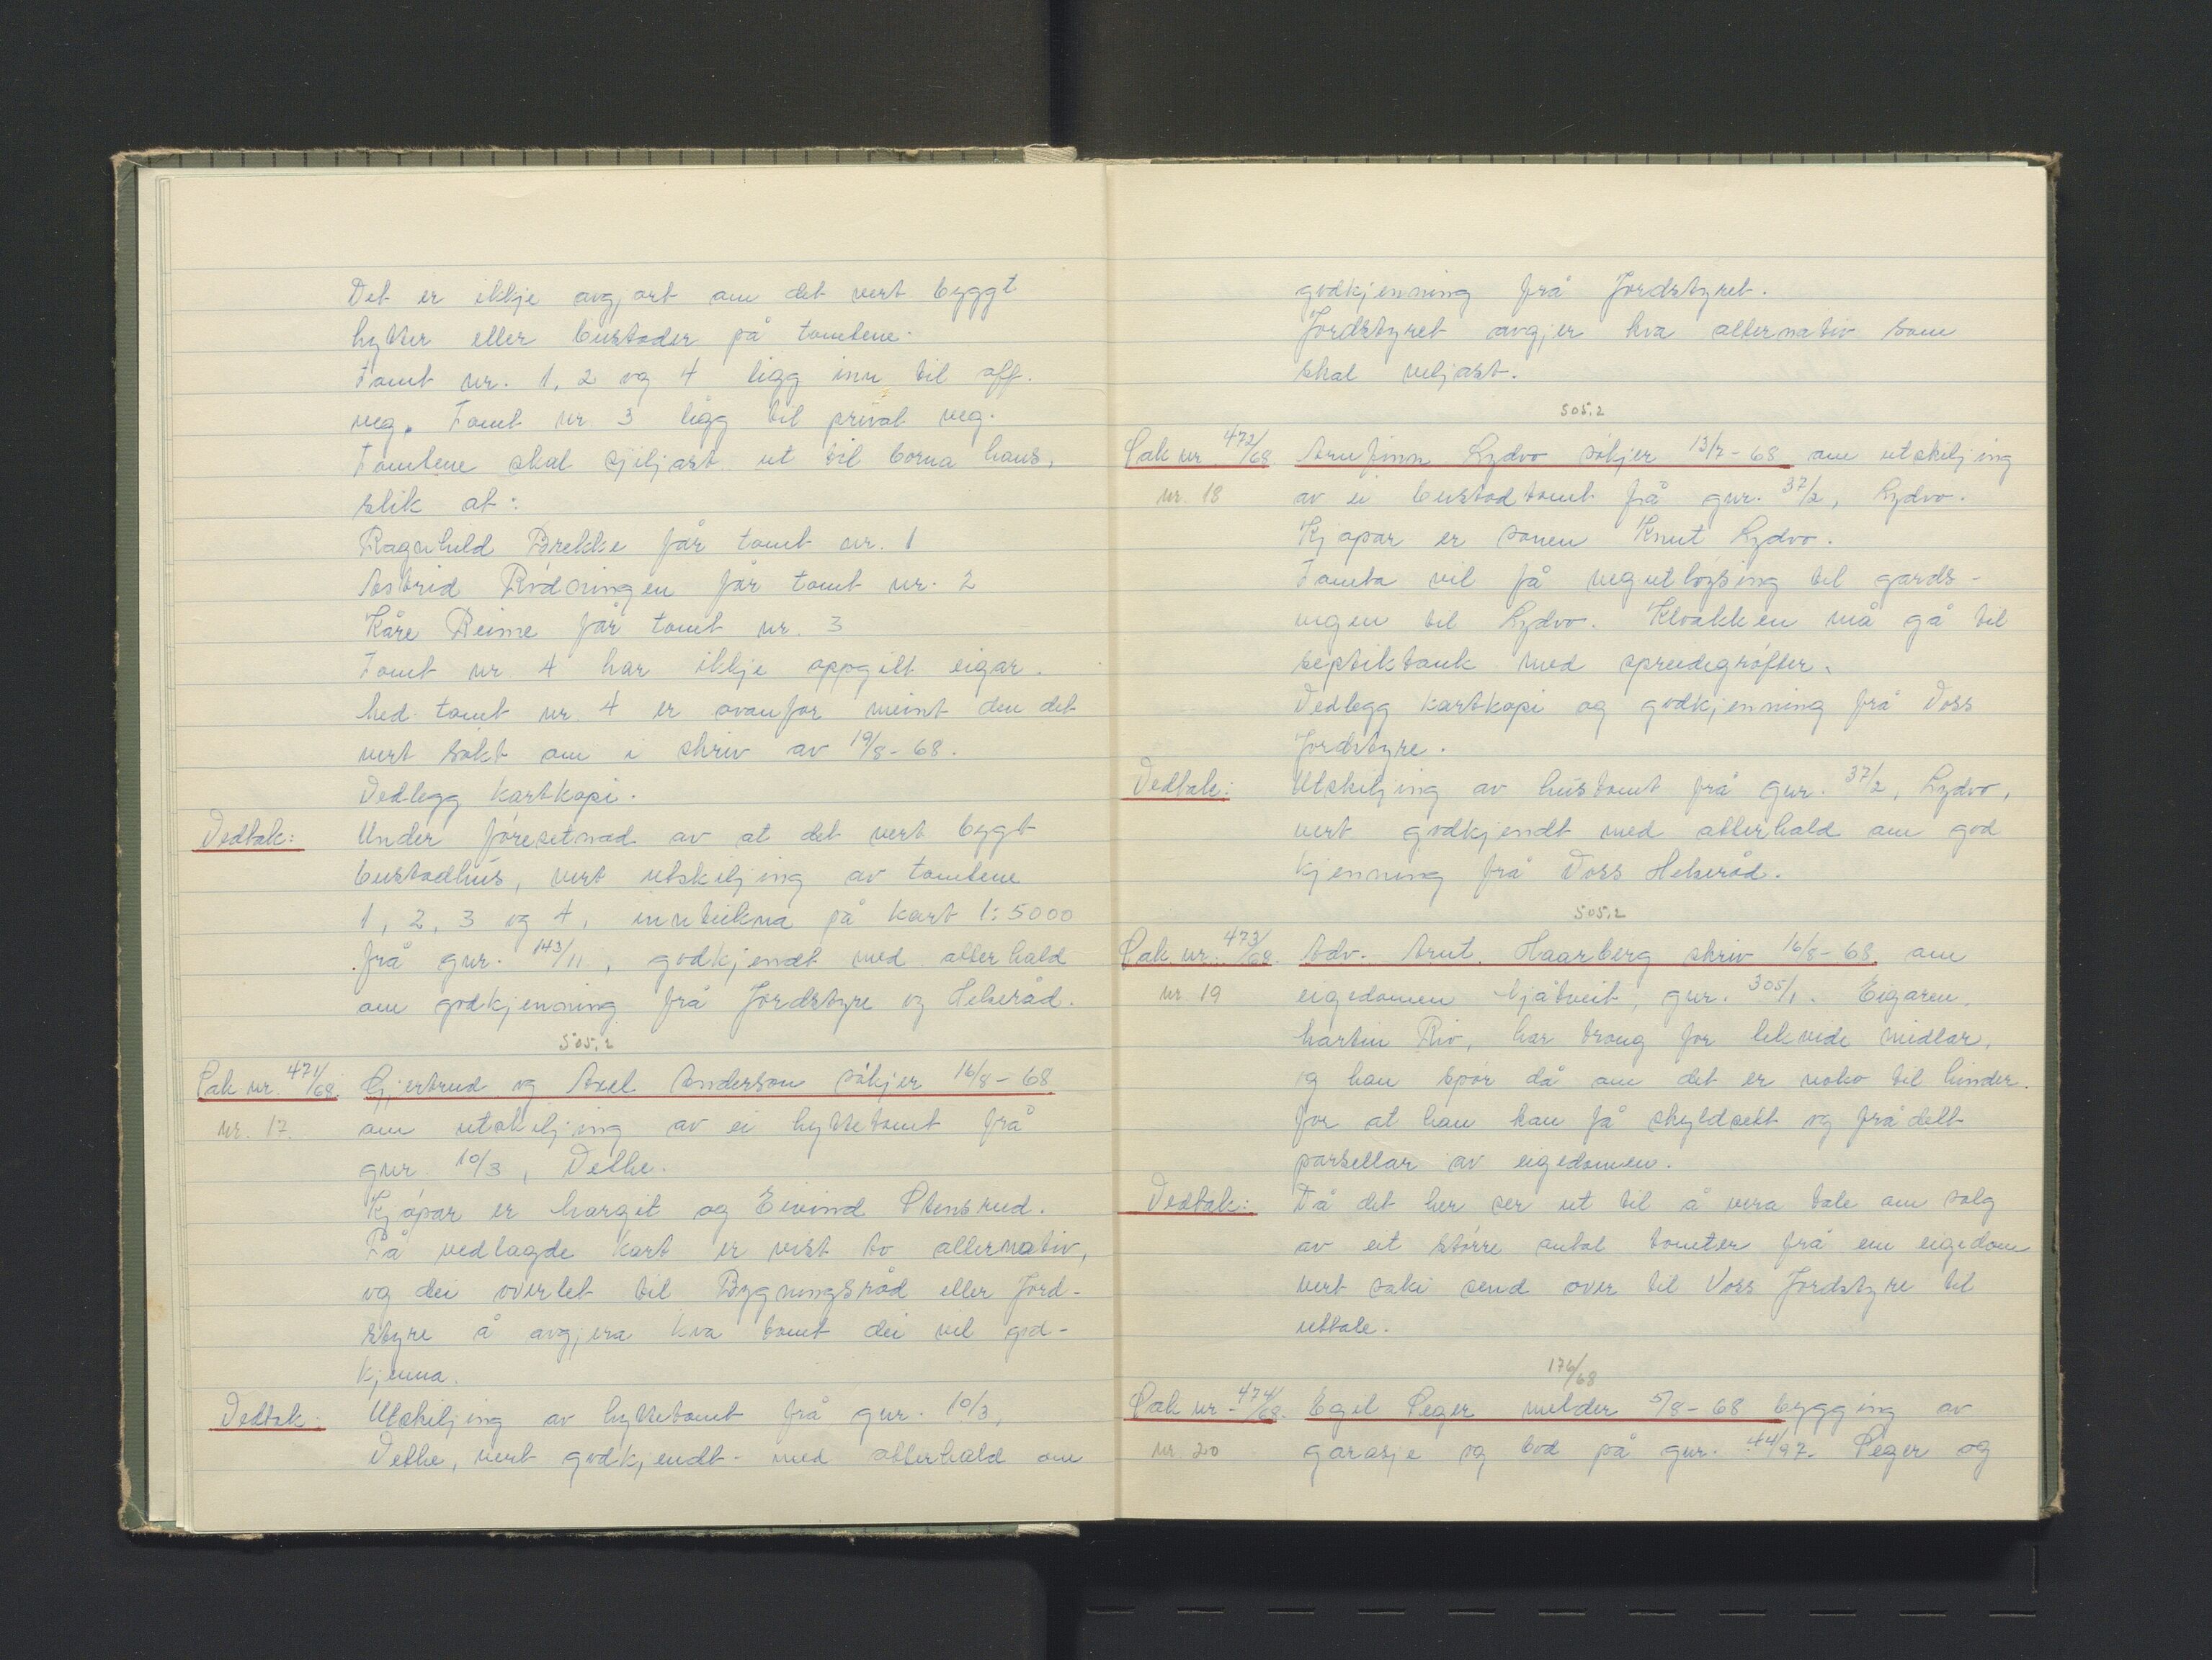 Det er ikkje avgjort om det vert byggt
hytter eller bustader på tomtene.
Tomt nr. 1, 2 og 4 ligg inn til off.
veg. Tomt nr 3 ligg til privat veg.
Tomtene skal sjiljast ut til borna hans,
slik at:
Ragnhild Brekke får tomt nr. 1
Astrid Rödningen får tomt nr. 2
Kåre Reime får tomt nr. 3
Tomt nr 4 har ikkje oppgitt eigar.
Med tomt nr. 4 er ovanfor meint den det
vert søkt om i skriv av 19/8-68.
Vedlegg kartkopi.
Vedtak: Under föresetnad av at det vert bygt
bustadhús, vert utskiljing av tomtene
1, 2, 3 og 4, innteikna på kart 1:5000
frå gnr. 143/11, godkjendt med atterhald
om godkjenning frå Jordstyre og Helseråd.
505.2
Sak nr. 471/68. Gjertrud og Axel Anderson sökjer 16/8-68
nr. 17. om utskiljing av ei hyttetomt frå
gnr. 10/3, Velke.
Kjöpar er Margit og Eivind Stensrud.
På vedlagde kart er vist to alternativ,
og dei overlet til Bygningsråd eller Jord-
styre å avgjera kva tomt dei vil god-
kjenna.
Vedtak: Utskiljing av hyttetomt frå gnr. 10/3,
Velke, vert godkjendt med atterhald om
godkjenning frå Jordstyret.
Jordstyret avgjer kva alternativ som
skal veljast.
505.2
Sak nr 472/68 Arnfinn Lydvo sökjer 13/7-68 om utskiljing
nr. 18 av ei bustadtomt frå gnr. 37/2, Lydvo.
Kjöpar er sonen Knut Lydvo.
Tomta vil få vegutlöysing til gards-
vegen til Lydvo. Kloakken må gå til
septiktank med spreidegröfter.
Vedlegg kartkopi og godkjenning frå Voss
Jordstyre.
Vedtak: Utskiljing av hústomt frå gnr. 37/2, Lydvo,
vert godkjendt med atterhald om god
kjenning frå Voss Helseråd.
505.2
Sak nr. 473/68. Adv. Arnt. Haarberg skriv 16/8-68. om
nr. 19 eigedomen Mjåtveit, gnr. 305/1. Eigaren,
Martin Riv, har trong for likvide midlar,
og han spör då om det er noko til hinder
for at han kan få skyldsett og frådelt
parsellar av eigedomen.
Vedtak: Då det her ser ut til å vera tale om salg
av eit större antal tomter frå ein eigedom
vert saki send over til Voss Jordstyre til
uttale.
176/68
Sak nr. 474/68. Egil Seger melder 5/8-68 bygging av
nr. 20 garasje og bod på gnr. 44/97. Seger og